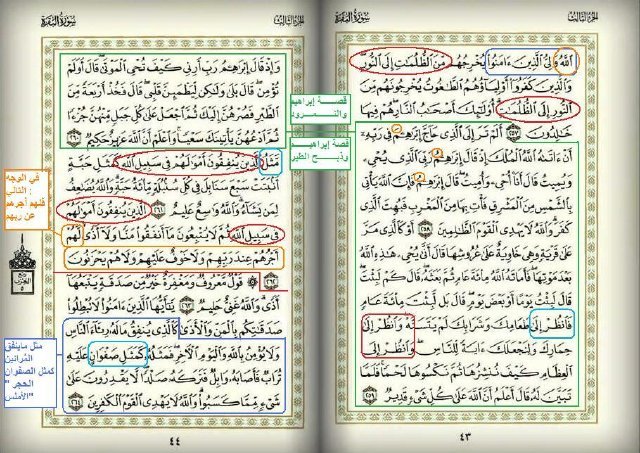 الجزء الثالث سورة البقرة
الله ولي الذين ءامنوا يخرجهم من الظلمت إلى النور
والذين كفروا أولياؤهم الطغوت يخرجونهم من
النور إلى الظلمت أولئك أصحب النار هم فيها
خلدون ٢٥٧ ألم تر إلى الذي حاج إبرهم في ربه
أن ءاتىه الله الملك إذ قال إبرهم ربي الذي يحي
ويميت قال أنا أحي وأميت قال إبرهم فإن الله يأتي
بالشمس من المشرق فأت بها من المغرب فبهت الذي
كفر والله لا يهدي القوم الظلمين ٢٥٨ أو كالذي مر
على قرية وهي خاوية على عروشها قال أنى يحي هذه الله
بعد موتها فأماته الله مائة عام ثم بعثه قال كم لبثت
قال لبثت يوما أو بعض يوم قال بل لبثت مائة عام
فانظر إلى طعامك وشرابك لم يتسنه وانظر إلى
حمارك ولنجعلك ءاية للناس وانظر إلى
العظام كيف ننشزها ثم نكسوها لحما فلما
تبين له قال أعلم أن الله على كل شيء قدير ٢٥٩
٤٣
الجزء الثالث سورة البقرة
وإذ قال إبرهم رب أرني كيف تحي الموتى قال أولم
تؤمن قال بلى ولكن ليطمئن قلبي قال فخذ أربعة من
الطير فصرهن إليك ثم اجعل على كل جبل منهن جزءا
ثم ادعهن يأتينك سعيا واعلم أن الله عزيز حكيم ٢٦٠
مثل الذين ينفقون أمولهم في سبيل الله كمثل حبة
أنبتت سبع سنابل في كل سنبلة مائة حبة والله يضعف
لمن يشاء والله وسع عليم ٢٦١ الذين ينفقون أمولهم
في سبيل الله ثم لا يتبعون ما أنفقوا منا ولا أذى لهم
أجرهم عند ربهم ولا خوف عليهم ولا هم يحزنون
٢٦٢ قول معروف ومغفرة خير من صدقة يتبعها
أذى والله غني حليم ٢٦٣ يأيها الذين ءامنوا لا تبطلوا
صدقتكم بالمن والأذى كالذي ينفق ماله رئاء الناس
ولا يؤمن بالله واليوم الأخر فمثله كمثل صفوان عليه
تراب فأصابه وابل فتركه صلدا لا يقدرون على
شيء مما كسبوا والله لا يهدي القوم الكفرين ٢٦٤
٤٤
قصة إبراهيم
والنمرود
قصة إبراهيم
وذبح الطير
في الوجه
التالي :
فلهم أجرهم
عن ربهم
مثل ماينفق
المرائين
كمثل الصفوان
" الحجر
الأملس"